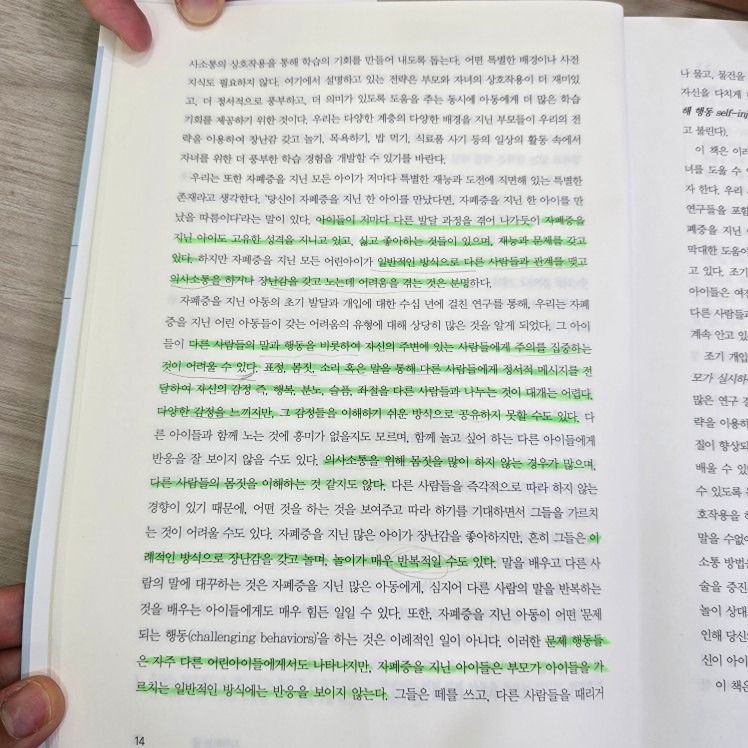 사소통의 상호작용을 통해 학습의 기회를 만들어 내도록 돕는다. 어떤 특별한 배경이나 사전
지식도 필요하지 않다. 여기에서 설명하고 있는 전략은 부모와 자녀의 상호작용이 더 재미있
고, 더 정서적으로 풍부하고, 더 의미가 있도록 도움을 주는 동시에 아동에게 더 많은 학습
기회를 제공하기 위한 것이다. 우리는 다양한 계층의 다양한 배경을 지닌 부모들이 우리의 전
략을 이용하여 장난감 갖고 놀기, 목욕하기, 밥 먹기, 식료품 사기 등의 일상의 활동 속에서
자녀를 위한 더 풍부한 학습 경험을 개발할 수 있기를 바란다.
우리는 또한 자폐증을 지닌 모든 아이가 저마다 특별한 재능과 도전에 직면해 있는 특별한
존재라고 생각한다. '당신이 자폐증을 지닌 한 아이를 만났다면, 자폐증을 지닌 한 아이를 만
났을 따름이다'라는 말이 있다. 아이들이 저마다 다른 발달 과정을 겪어 나가듯이 자폐증을
지닌 아이도 고유한 성격을 지니고 있고, 싫고 좋아하는 것들이 있으며, 재능과 문제를 갖고
있다. 하지만 자폐증을 지닌 모든 어린이가 일반적인 방식으로 다른 사람들과 관계를 맺고
의사소통을 하거나 장난감을 갖고 노는데 어려움을 겪는 것은 분명하다.
자폐증을 지닌 아동의 초기 발달과 개입에 대한 수십 년에 걸친 연구를 통해, 우리는 자폐
증을 지닌 어린 아동들이 갖는 어려움의 유형에 대해 상당히 많은 것을 알게 되었다. 그 아이
들이 다른 사람들의 말과 행동을 비롯하여 자신의 주변에 있는 사람들에게 주의를 집중하는
것이 어려울 수 있다. 표정, 몸짓, 소리 혹은 말을 통해 다른 사람들에게 정서적 메시지를 전
달하여 자신의 감정 즉, 행복, 분노, 슬픔, 좌절을 다른 사람들과 나누는 것이 대개는 어렵다.
다양한 감정을 느끼지만, 그 감정들을 이해하기 쉬운 방식으로 공유하지 못할 수도 있다. 다
른 아이들과 함께 노는 것에 흥미가 없을지도 모르며, 함께 놀고 싶어 하는 다른 아이들에게
반응을 잘 보이지 않을 수도 있다. 의사소통을 위해 몸짓을 많이 하지 않는 경우가 많으며,
다른 사람들의 몸짓을 이해하는 것 같지도 않다. 다른 사람들을 즉각적으로 따라 하지 않는
경향이 있기 때문에, 어떤 것을 하는 것을 보여주고 따라 하기를 기대하면서 그들을 가르치
는 것이 어려울 수도 있다. 자폐증을 지닌 많은 아이가 장난감을 좋아하지만, 흔히 그들은 이
례적인 방식으로 장난감을 갖고 놀며, 놀이가 매우 반복적일 수도 있다. 말을 배우고 다른 사
람의 말에 대꾸하는 것은 자폐증을 지닌 많은 아동에게, 심지어 다른 사람의 말을 반복하는
것을 배우는 아이들에게도 매우 힘든 일일 수 있다. 또한, 자폐증을 지닌 아동이 어떤 '문제
되는 행동(challenging behaviors)'을 하는 것은 이례적인 일이 아니다. 이러한 문제 행동들
은 자주 다른 어린아이들에게서도 나타나지만, 자폐증을 지닌 아이들은 부모가 아이들을 가
르치는 일반적인 방식에는 반응을 보이지 않는다. 그들은 떼를 쓰고, 다른 사람들을 때리거
14
나 물고, 물건을
자신을 다치게
해 행동 self-inj
고 불린다).
이 책은 이러
녀를 도울 수
자 한다. 우리
연구들을 포함
폐증을 지닌
막대한 도움이
고 있다. 조기
아이들은 여전
다른 사람들과
계속 안고 있
조기 개입
모가 실시하
많은 연구
략을 이용하
질이 향상되
배울 수 있
수 있도록
호작용을 하
말을 수없이
소통 방법을
술을 증진
놀이 상대
인해 당신
신이 아이
이 책은